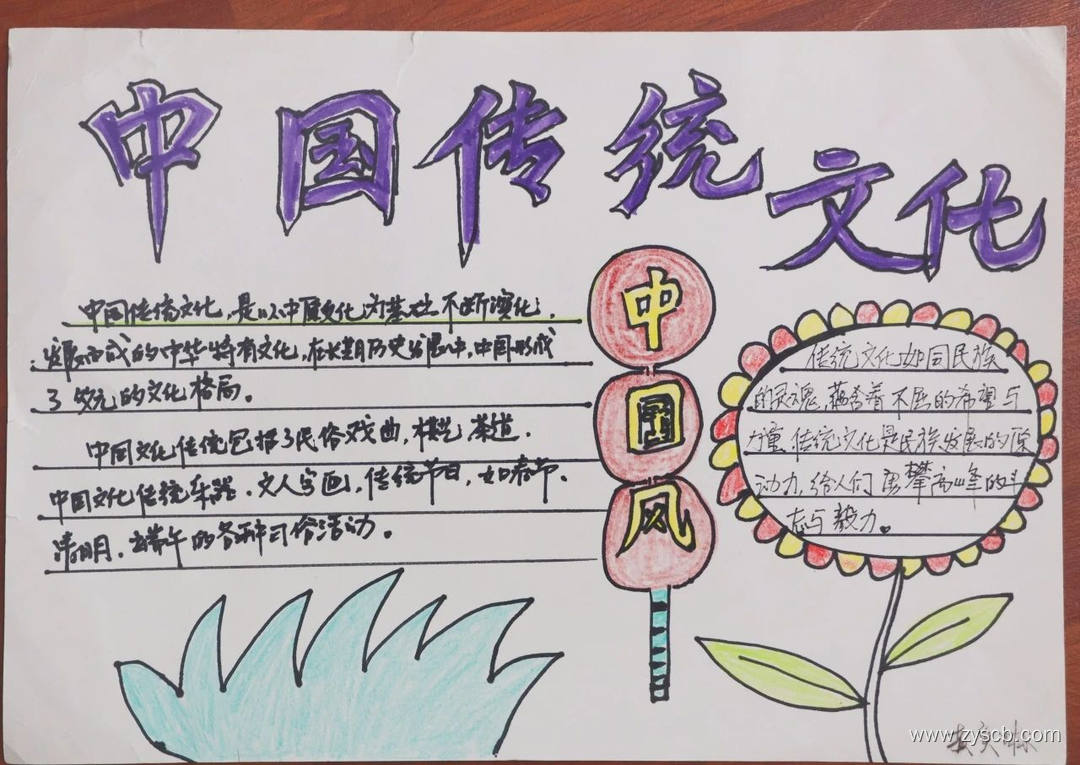 中国传统文化
中国传统文化,是以中原文化为基础不断演化,
发展而成的中华特有文化,在长期历史发展中,中国形成
了多元的文化格局。
中国文化传统包括了民俗戏曲,棋艺茶道.
中国文化传统乐器.文人写画,传统节日,如春节.
清明.端午的各种习俗活动。
中
国
风
传统文化如同民族
的灵魂,蕴含着不屈的希望与
力量,传统文化是民族发展的原
动力,给人们勇攀高峰的斗
志与毅力。
www.zyscb.com